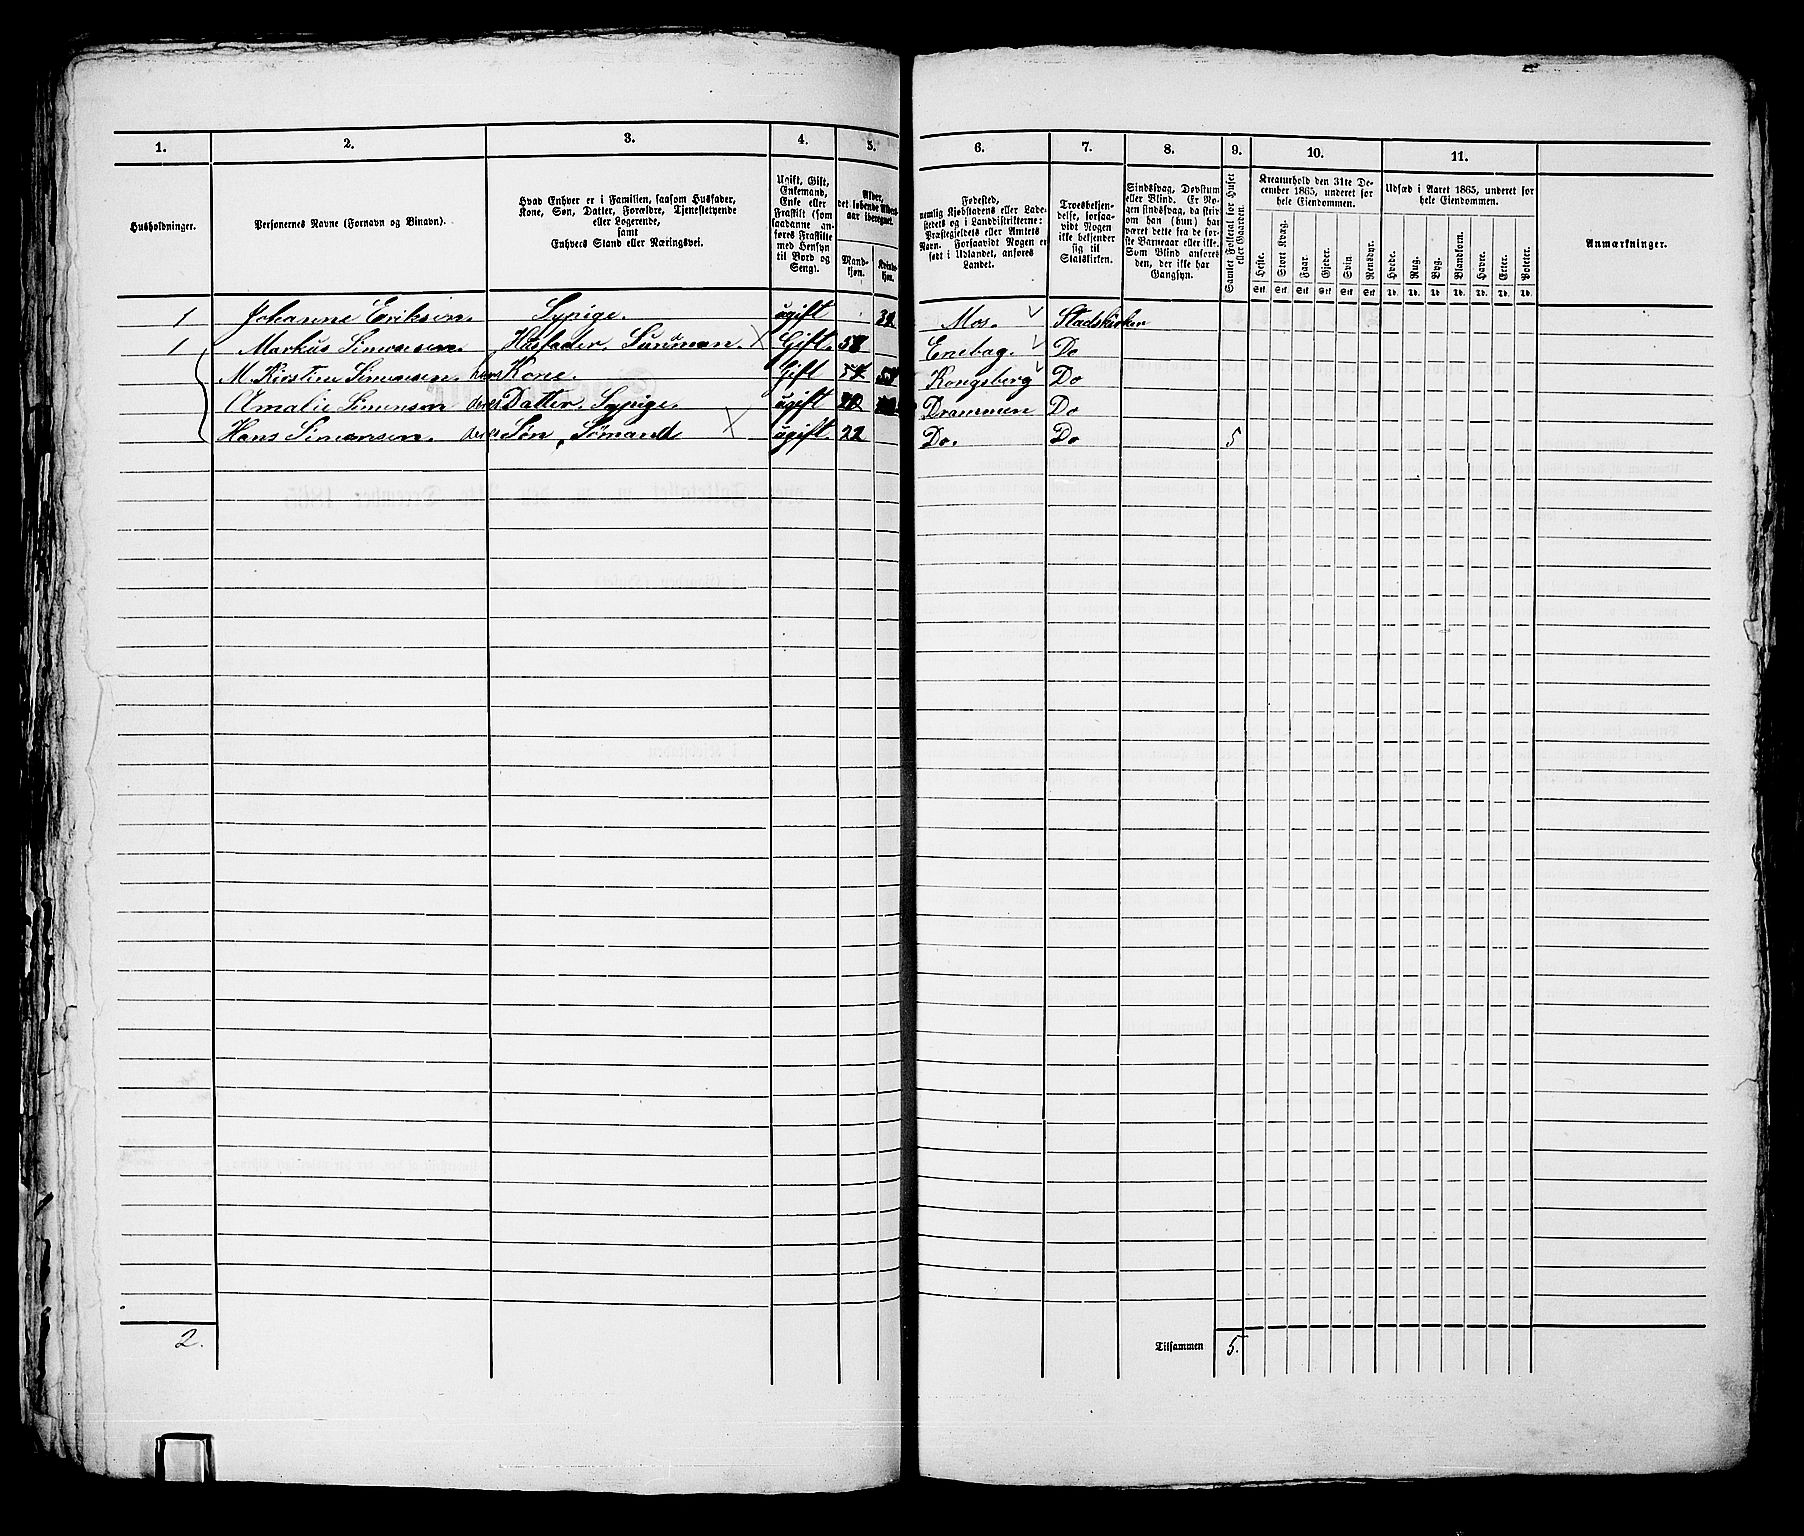 1. 2. 3. 4. 5. 6. 7. 8. 9. 10. 11.
Husholdninger.
Personernes Navne (Fornavn og Binavn).
Hvad Enhver er i Familien, saasom Husfader,
Kone, Søn, Datter, Forældre, Tjenestetyende
eller Logerende,
samt
Enhvers Stand eller Næringsvei.
Ugift, Gift,
Enkemand,
Enke eller
Fraskilt (som
saadanne an-
føres Fraskilte
med Hensyn
til Bord og
Seng).
Alder,
det løbende Alders-
aar iberegnet.
Mand-
kjøn.
Kvinde-
kjøn.
Fødested,
nemlig Kjøbstadens eller Lade-
stedets og i Landdistrikterne:
Præstegjeldets eller Amtets
Navn. Forsaavidt Nogen er
født i Udlandet, anføres
Landet.
Troesbekjen-
delse, forsaa-
vidt Nogen
ikke bekjender
sig til
Statskirken.
Sindssvag, Døvstum
eller Blind. Er No-
gen sindssvag, da skriv
om han (hun) har
været dette fra de før-
ste Barneaar eller ikke.
Som Blind anføres
den, der ikke har
Gangsyn.
Samlet Folketal for Huset
eller Gaarden.
Kreaturhold den 31te De-
cember 1865, underet for
hele Eiendommen.
Heste. Stort Kvæg. Faar. Gjeder. Svin. Rensdyr.
Stk Stk Stk Stk Stk Stk
Udsæd i Aaret 1865, underet for
hele Eiendommen.
Hvede. Rug. Byg. Blandkorn. Havre. Erter. Poteter.
Td. Td. Td. Td. Td. Td. Td.
Anmærkninger.
1 Johanne Eriksen. Sypige. ugift Mos. Stadskirken
1 Markus Simonsen. Husfader, Gift. 58 Enebag. Do
M. Kirstine Simonsen. hans Kone. Gift Kongsberg Do
Amalie Simonsen deres Datter, Sypige. ugift 20 Drammen Do
Hans Simonsen. deres Søn, Sømand ugift. 22 Do. Do 5
2. Tilsammen 5.